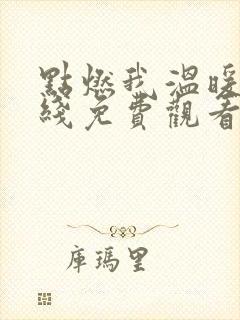 點燃我溫暖
綫免費觀看
庫瑪里